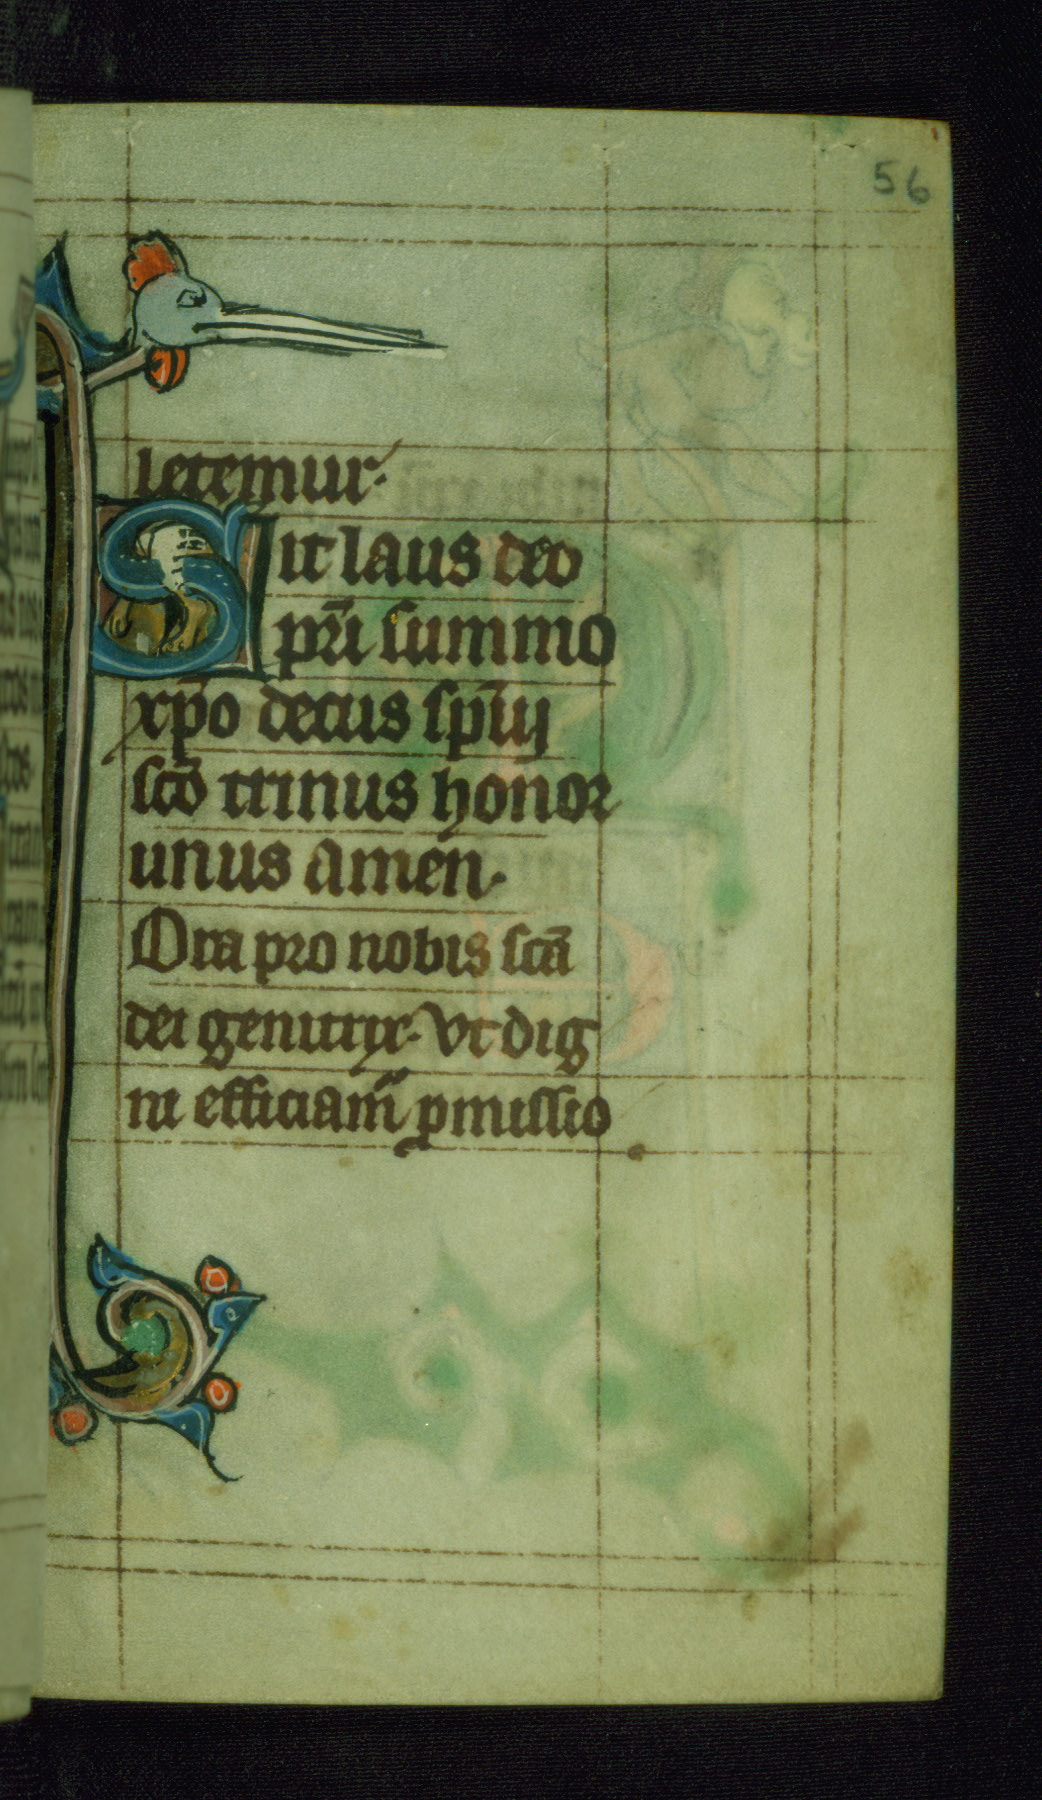 56
letemur·
Sit laus deo
pr̄i summo
xp̄o decus sp̄uĳ
sc̄o trinus honor
unus amen·
Ora pro nobis sc̄a
dei genitrix· Vt dig
ni efficiam̄ ꝓmissio